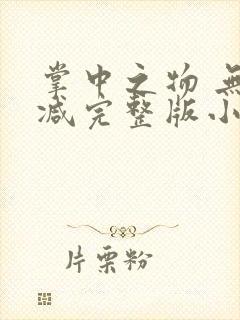 掌中之物 無
减完整版小
片栗粉